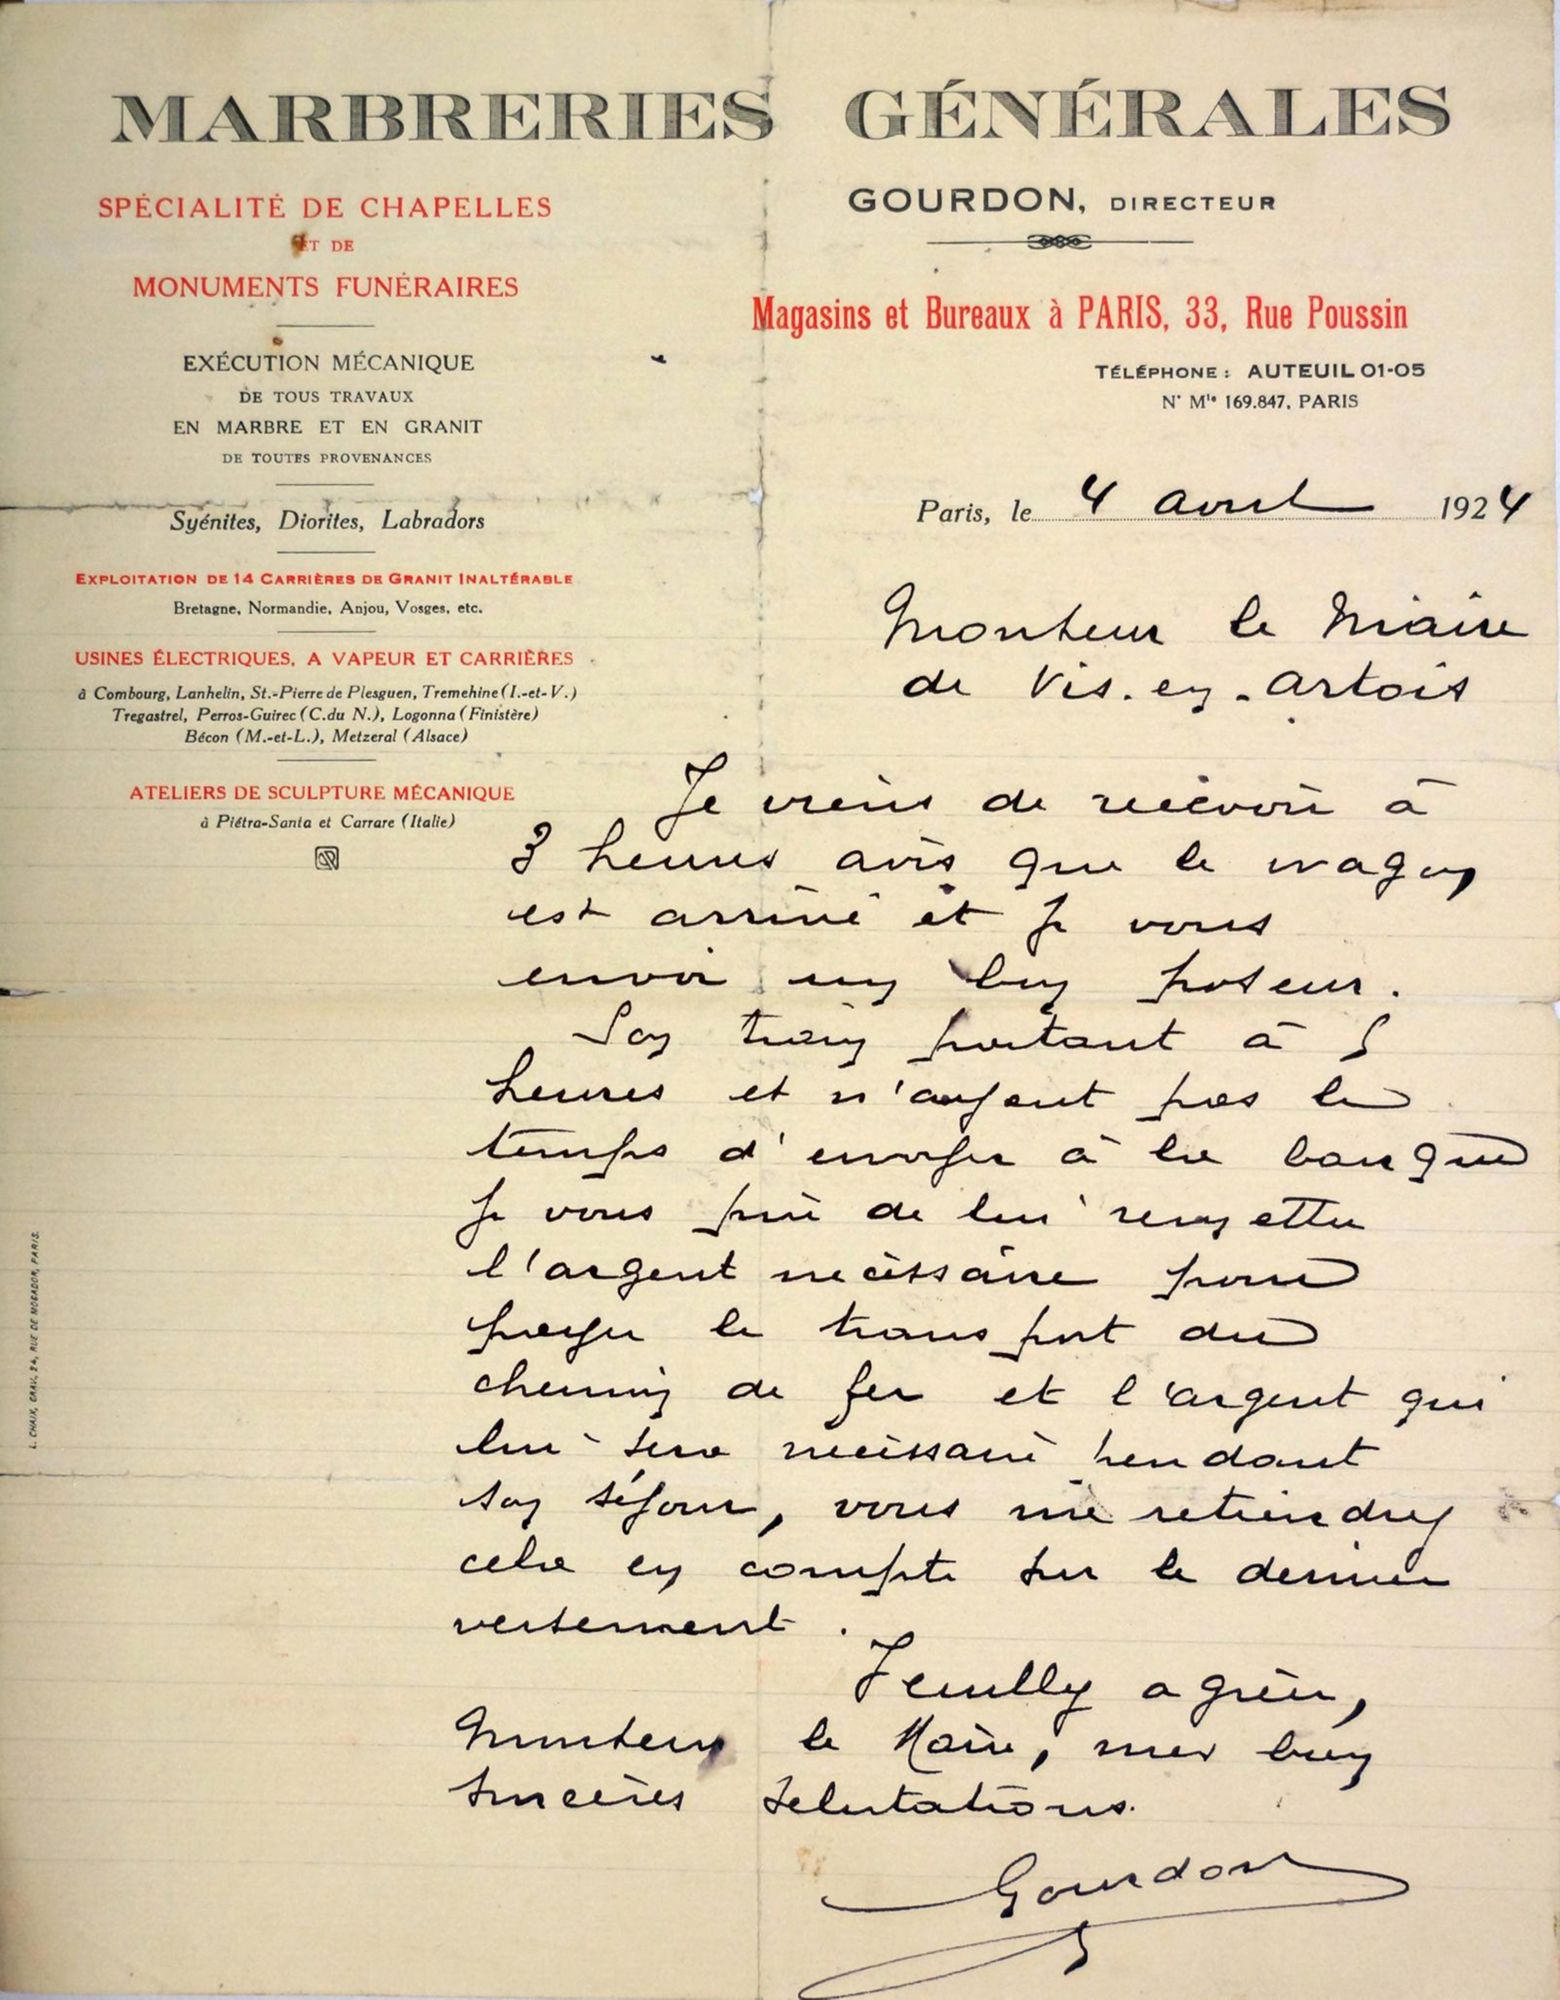 MARBRERIES GÉNÉRALES
GOURDON, DIRECTEUR
Magasins et Bureaux à PARIS, 33, Rue Poussin
TÉLÉPHONE : AUTEUIL 01-05
N° Mle 169.847, PARIS
SPÉCIALITÉ DE CHAPELLES
ET DE
MONUMENTS FUNÉRAIRES
EXÉCUTION MÉCANIQUE
DE TOUS TRAVAUX
EN MARBRE ET EN GRANIT
DE TOUTES PROVENANCES
Syénites, Diorites, Labradors
EXPLOITATION DE 14 CARRIÈRES DE GRANIT INALTÉRABLE
Bretagne, Normandie, Anjou, Vosges, etc.
USINES ÉLECTRIQUES, A VAPEUR ET CARRIÈRES
à Combourg, Lanhelin, St.-Pierre de Plesguen, Tremehine (I.-et-V.)
Tregastrel, Perros-Guirec (C.du N.), Logonna (Finistère)
Bécon (M.-et-L.), Metzeral (Alsace)
ATELIERS DE SCULPTURE MÉCANIQUE
à Piétra-Santa et Carrare (Italie)
L. CHAIX, GRAV. 24, RUE DE MOGADOR, PARIS.
Paris, le 4 avril 1924
Monsieur le Maire
de Vis-en-Artois
Je viens de recevoir à
3 heures avis que le wagon
est arrivé et je vous
envoi un bon poseur.
Son train partant à 5
heures et n'ayant pas le
temps d'envoyer à la banque
je vous prie de lui remettre
l'argent nécessaire pour
payer le transport du
chemin de fer et l'argent qui
lui sera nécessaire pendant
son séjour, vous me retiendrez
cela en compte sur le dernier
versement.
Veuillez agréer,
Monsieur le Maire, mes bien
sincères salutations.
Gourdon